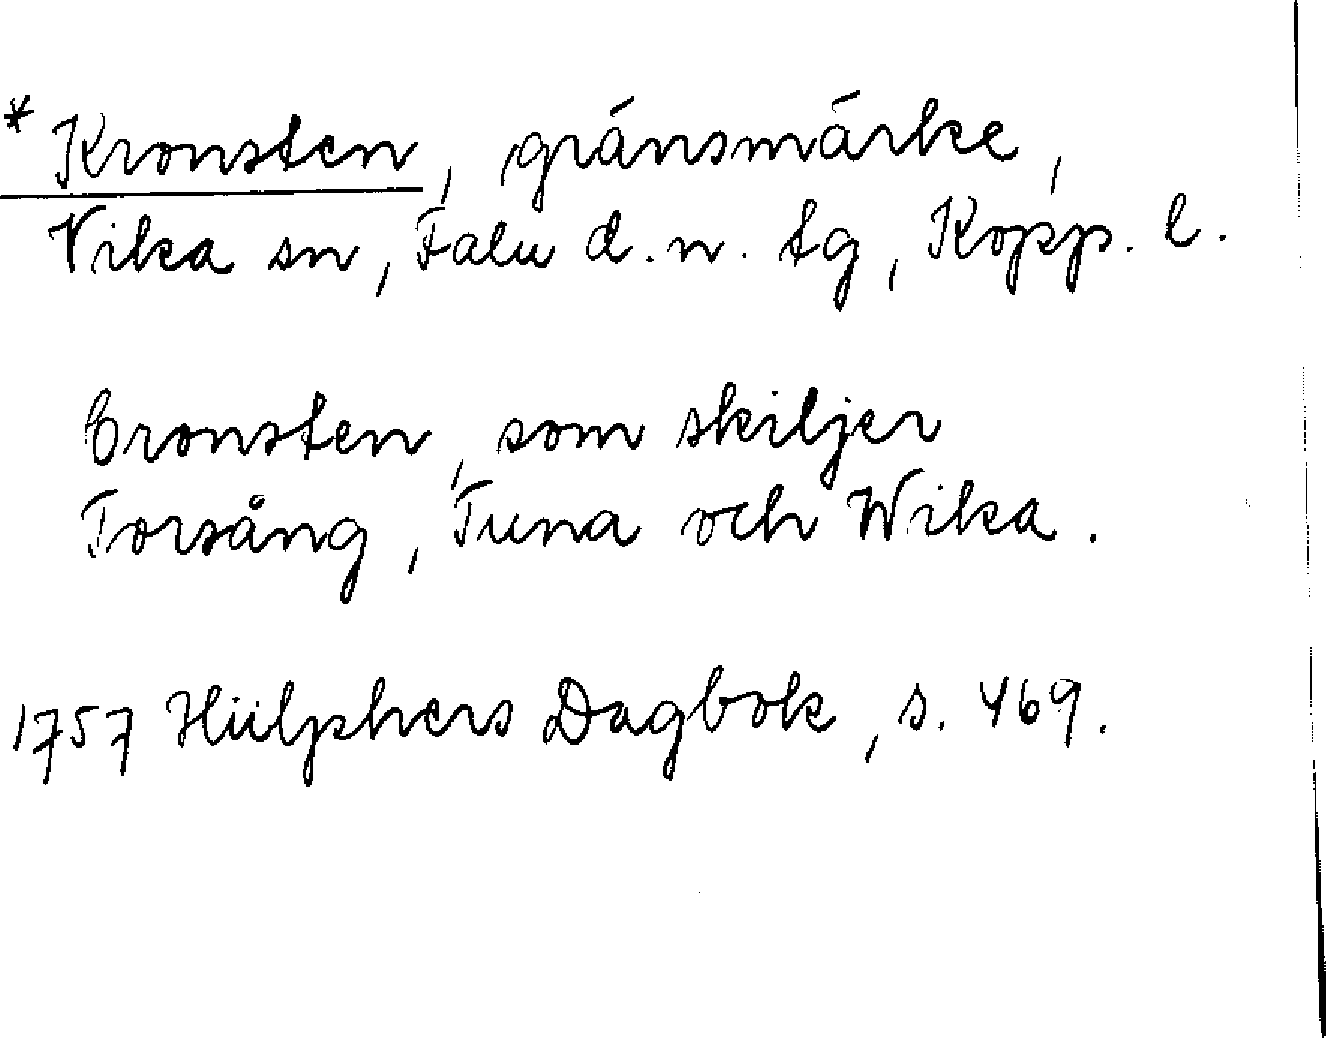 * Kronsten, gränsmärke,
Vika sn, Falu d. n. tg, Kopp. l.
Cronsten, som skiljer
Torsång, Tuna och Wika.
1757 Hülphers Dagbok, s. 469.